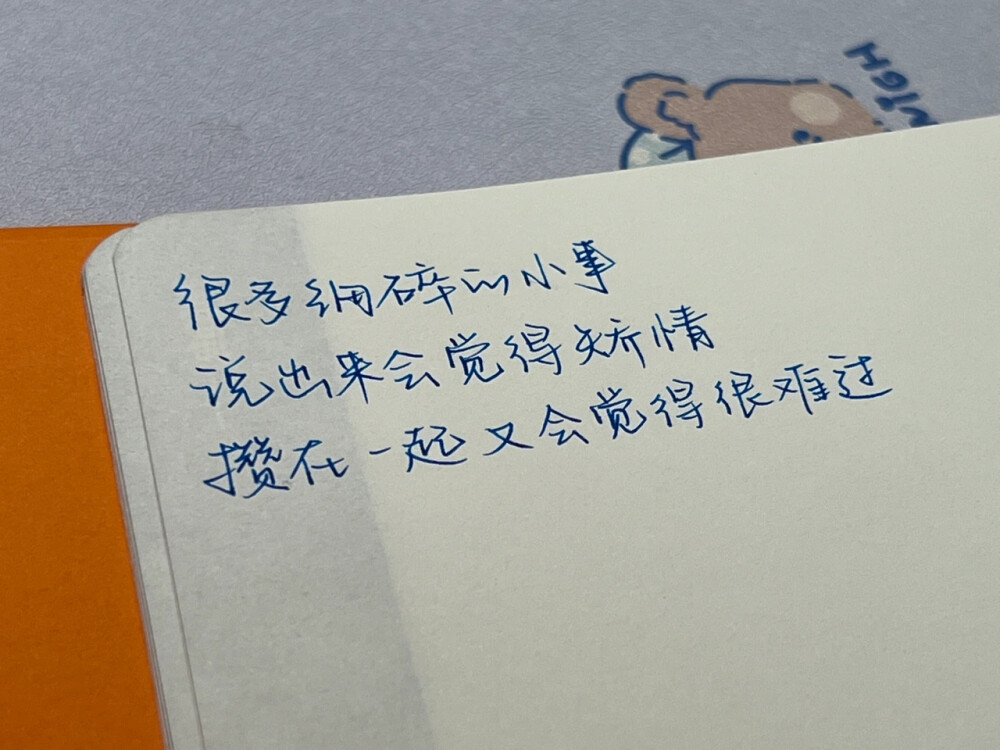 很多细碎的小事
说出来会觉得矫情
攒在一起又会觉得很难过